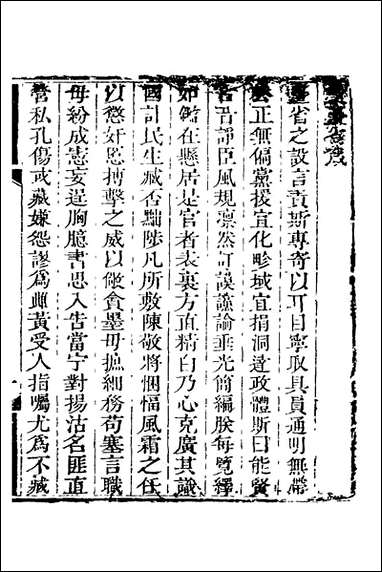 臺省箴
臺省之設言責斯專寄以耳目寧取具員通明無滯
公正無偏黨援宜化畛域宜捐洞達政體斯曰能賢
古昔諍臣風規凛然訏謨讜論垂光簡編朕每覽繹
如鑑在懸居是官者表裏方直精白乃心克廣其識
國計民生臧否黜陟凡所敷陳敬將悃愊風霜之任
以懲奸慝搏擊之威以儆貪墨毋摭細務苟塞言職
毋紛成憲妄逞胸臆書思入告當宁對揚沽名匪直
營私孔傷或藏嫌怨謬爲雌黃受人指囑尤爲不臧